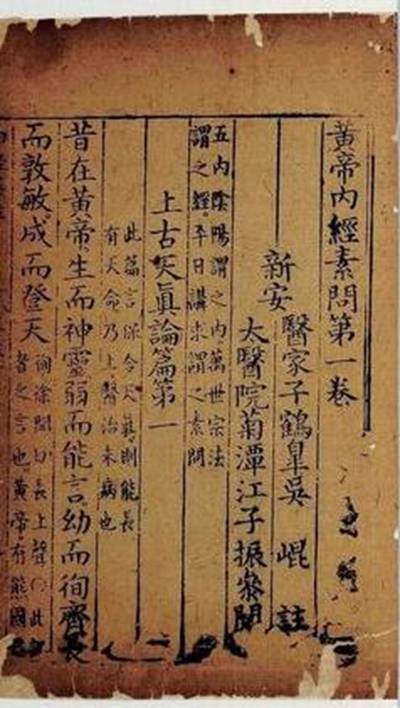 黃帝內經素問第一卷
新安
醫家子鶴皐吳崐註
太醫院菊潭江子振叅閱
五內陰陽謂之內萬世宗法
謂之經平日講求謂之素問
上古天眞論篇第一
此篇言保合天眞則能長
有天命乃上醫治未病也
昔在黃帝生而神靈弱而能言幼而徇齊長
而敦敏成而登天
徇徐閏切長上聲此
者之言也黃帝有熊國